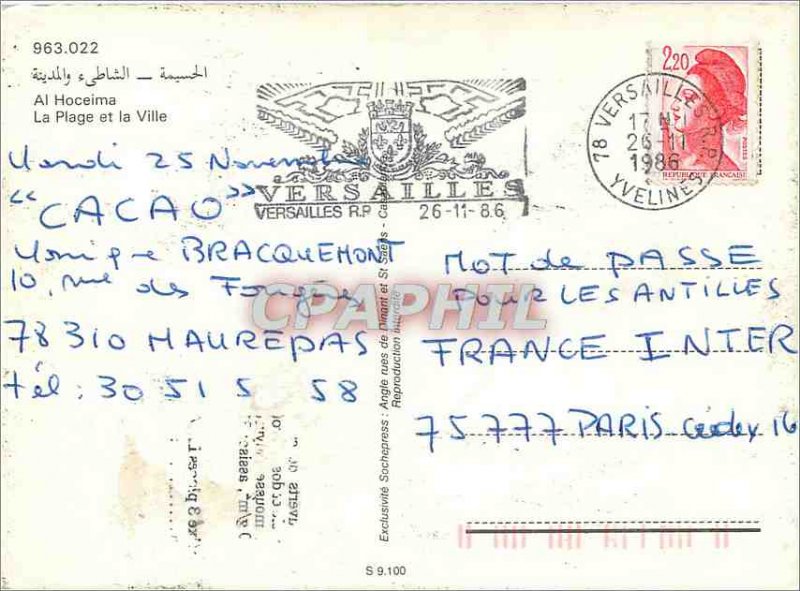 963.022
الحسيمة — الشاطىء والمدينة
Al Hoceima
La Plage et la Ville
Mardi 25 Novembre
"CACAO"
Monique BRACQUEMONT
10, rue des Fougères
78310 MAUREPAS
Tél : 30 51 5 58
VERSAILLES
VERSAILLES R.P. 26-11-86
2,20
REPUBLIQUE FRANÇAISE
78 VERSAILLES R.P.
17 H
26-11
1986
YVELINES
MOT de PASSE
POUR LES ANTILLES
FRANCE INTER
75777 PARIS Cedex 16
Exclusivité Sochepress : Angle rues de Dinant et St Saëns -
Reproduction interdite
CPAPHIL
S 9.100